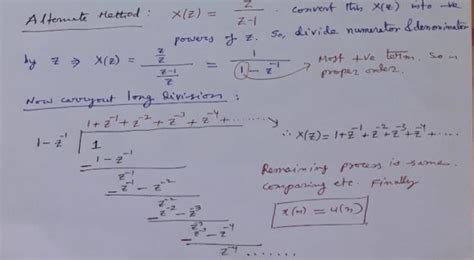 Alternate Method : X(z) = z / z-1 . convert this X(z) into -ve
powers of z. So, divide numerator & denominator
by z ⇒ X(z) = (z/z) / ((z-1)/z) = 1 / (1 - z⁻¹) → Most +ve term. So in
proper order.
Now carryout long Division :
1 + z⁻¹ + z⁻² + z⁻³ + z⁻⁴ + ......
1 - z⁻¹ | 1 ∴ X(z) = 1 + z⁻¹ + z⁻² + z⁻³ + z⁻⁴ + ....
1 - z⁻¹
z⁻¹
z⁻¹ - z⁻² Remaining process is same.
z⁻² comparing etc. Finally
z⁻² - z⁻³
z⁻³ x(n) = u(n)
z⁻³ - z⁻⁴
z⁻⁴ .......